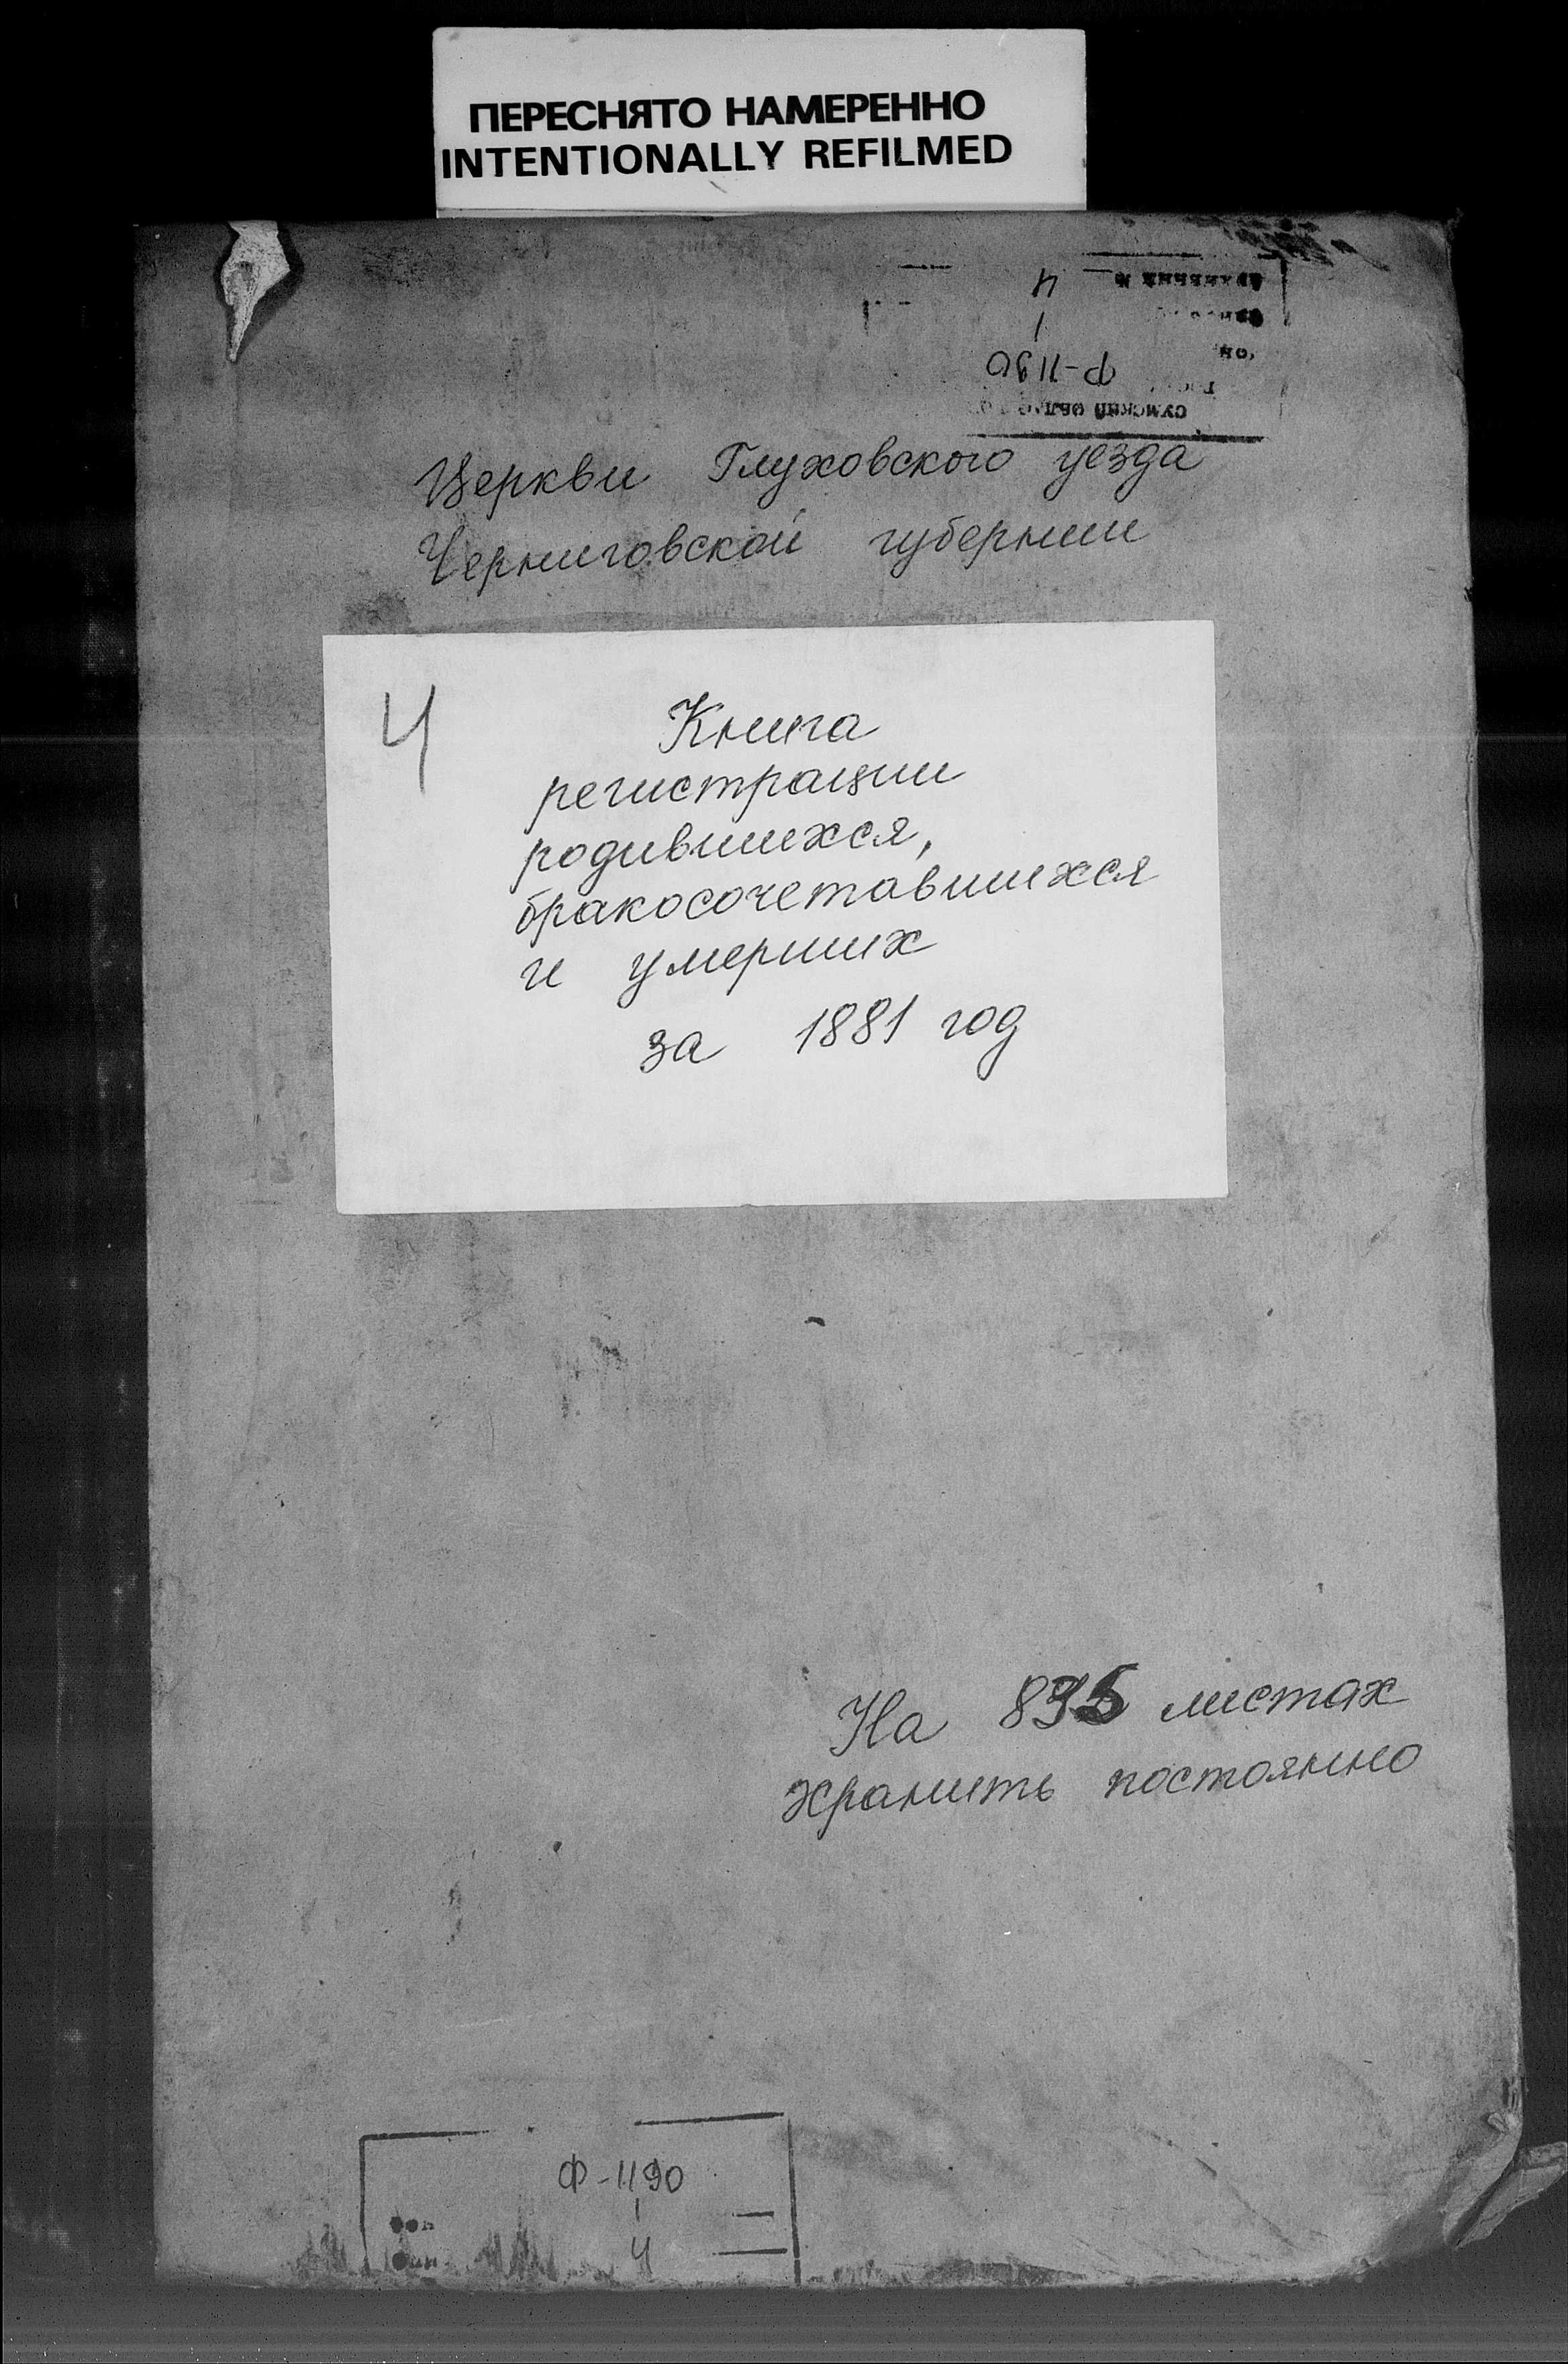 ПЕРЕСНЯТО НАМЕРЕННО
INTENTIONALLY REFILMED
4
1
Ф-1190
СУМСКИЙ
Церкви Глуховского уезда
Черниговской губернии
4
Книга
регистрации
родившихся,
бракосочетавшихся
и умерших
за 1881 год
На листах
хранить постоянно
Ф-1190
1
4